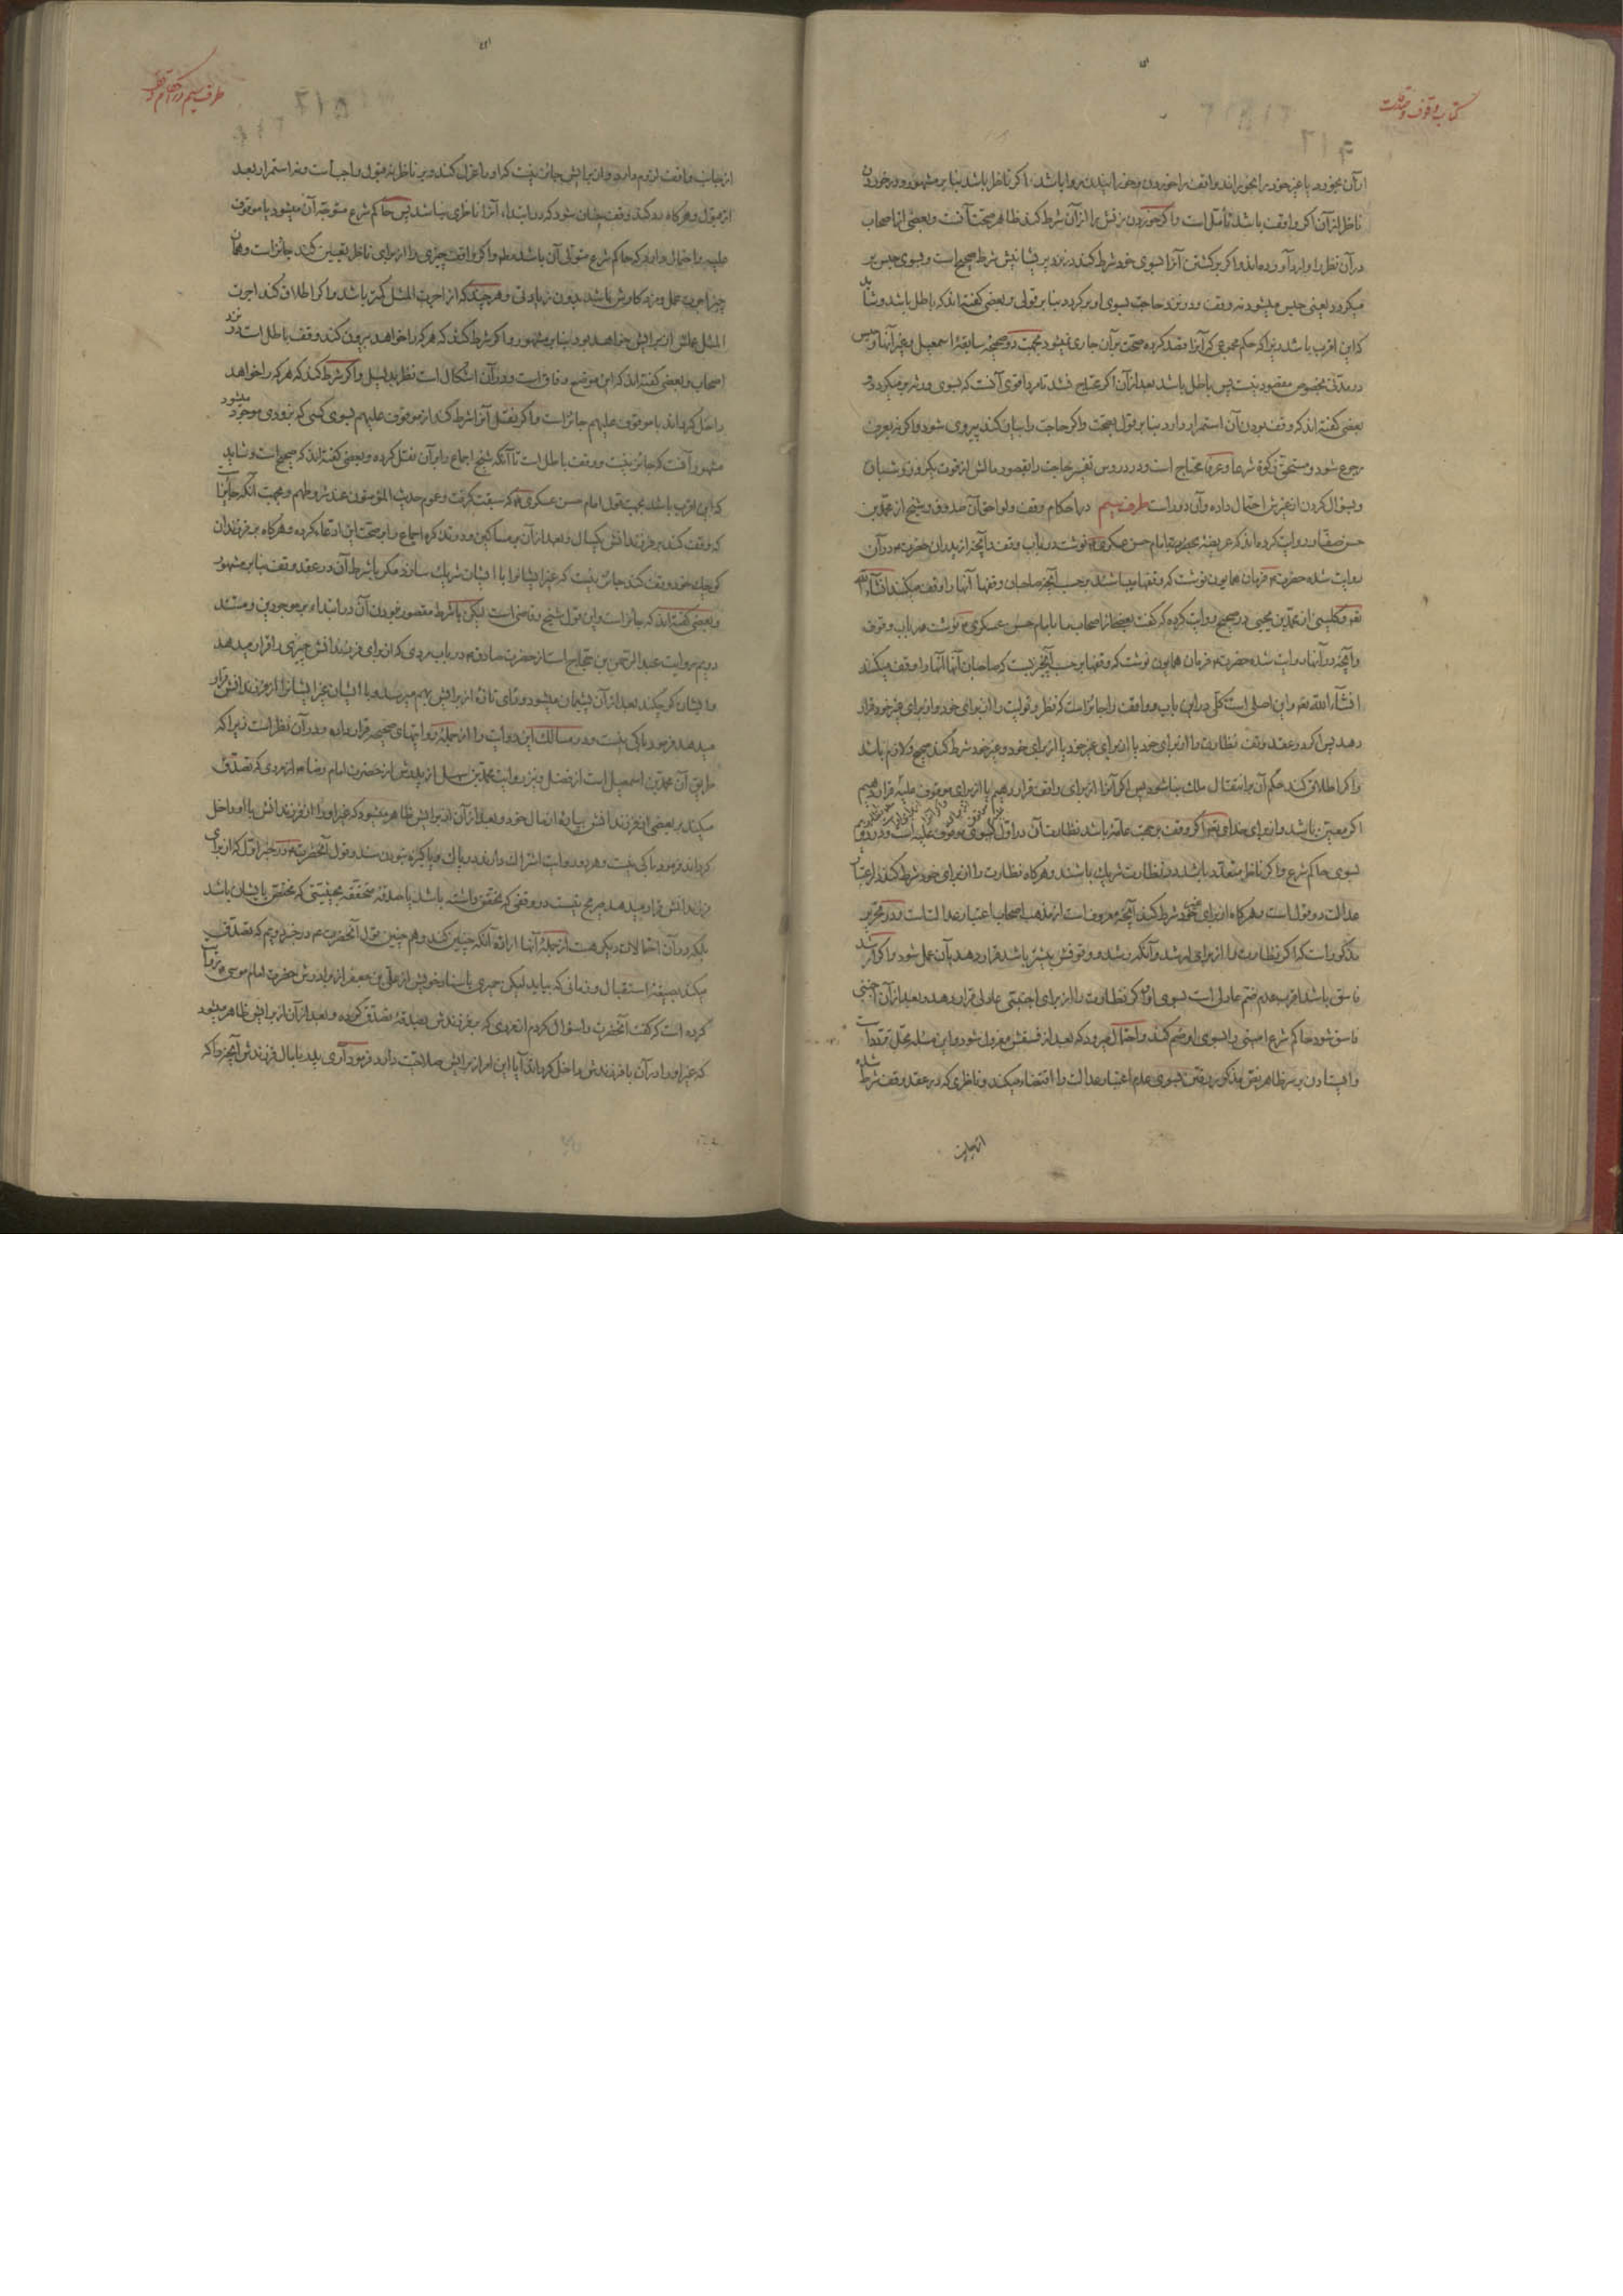 کتاب وقوف و صدقات
ازآن بخورد یا غیر خود را بخوراند واقف را خوردن و خورانیدن روا باشد اگر ناظر باشد بنا بر مشهور و در خوردن
ناظر از آن اگر واقف باشد تأمل است و اگر خوردن نفس را از آن شرط کند ظاهر صحت آنست و بعضی از اصحاب
در آن نظر را وارد آورده اند و اگر برگشتن آنرا بسوی خود شرط کند در نزد پریشانیش شرط صحیح است و بسوی حبس بر
میکردد یعنی حبس میشود نه وقف و در نزد حاجت بسوی او برکردد بنا بر قولی و بعضی گفته اند که باطل باشد و شاید
که این اقرب باشد زیرا که حکم محبوی که آنرا قصد کرده صحت بر آن جاری نمیشود بجهت دو صحیحه سابقه اسمعیل و غیر آنها و حبس
در مدتی مخصوص مقصود نیست پس باطل باشد بعد از آن اگر محتاج نشد تا مرد اقوی آنست که بسوی ورثه بر میکردد و
بعضی گفته اند که وقف بودن آن استمرار دارد بنا بر قول بصحت و اگر حاجت را بیان کند پیروی شود و اگر نه بعرف
رجوع شود و مستحق زکوة شرعا و عرفا محتاج است و در دروس تفسیر حاجت را بقصور مالش از قوت یکروز و شبان
و بسؤال کردن از غیرش احتمال داده و آن دور است طرف سیم در احکام وقف و لواحق آن صدوق و شیخ از محمد بن
حسن صفار روایت کرده اند که عریضه بحضرت امام حسن عسکری نوشت در باب وقف و آنچه از پدران حضرت در آن
روایت شده حضرت فرمان همایون نوشت که وقفها میباشد بر حسب آنچه صاحبان وقفها آنها را وقف میکنند انشاءالله
تعه و کلینی از محمد بن یحیی در صحیح روایت کرده که گفت بعضی از اصحاب ما بامام حسن عسکری نوشت در باب وقوف
و آنچه در آنها روایت شده حضرت فرمان همایون نوشت که وقفها بر حسب آنچیزیست که صاحبان آنها آنها را وقف میکنند
انشاءالله تعه و این اصلی است کلی در این باب و واقف را جائز است که نظر و تولیت را از برای خود و از برای غیر خود قرار
دهد پس اگر در عقد وقف نظارت را از برای خود یا از برای غیر خود یا از برای خود و غیر خود شرط کند صحیح و لازم باشد
و اگر اطلاق کند حکم آن بر انتقال ملک بنا شود پس اگر آنرا از برای واقف قرار دهیم یا از برای موقوف علیه قرار دهیم
اگر معین باشد و از برای خدای تعه اگر وقف بر جهت عامه باشد نظارت آن در اول بسوی موقوف علیه است و در دوم
بسوی حاکم شرع و اگر ناظر متعدد باشند در نظارت شریک باشند و هرکاه نظارت را از برای خود شرط کند در اعتبار
عدالت دو قول است و هرکاه از برای غیر خود شرط کند آنچه معروفست از مذهب اصحاب اعتبار عدالت است و در تحریر
مذکور است که اگر نظارت را از برای ارشد و آنکه رشد و وقوفش بیشتر باشد قرار دهد بآن عمل شود و اگر ارشد
فاسق باشد اقرب عدم ضم عادلی است بسوی او و اگر نظارت را از برای اجنبی عادلی قرار دهد و بعد از آن اجنبی
فاسق شود حاکم شرع امینی را بسوی او ضم کند و احتمال میرود که بعد از فسقش معزول شود و این مسئله محل تردد است
و ایستادن بر سر ظاهر نص مذکور رفتن بسوی عدم اعتبار عدالت را اقتضاء میکند و ناظری که در عقد وقف شرط شده
از جانب
طرف سیم در احکام وقف
از جانب واقف لزوم دارد و از برایش جائز نیست که او را عزل کند و بر ناظر نه قبول واجب است و نه استمرار بعد
از قبول و هرکاه رد کند وقف چنان شود که در ابتداء آنرا ناظری نباشد پس حاکم شرع متوجه آن میشود یا موقوف
علیه و احتمال دارد که حاکم شرع متولی آن باشد مطه و اگر واقف چیزی را از برای ناظر تعیین کند جائز است و همان
چیز اجرت عمل و مزد کاوش باشد بدون زیادتی و هرچند که از اجرت المثل کمتر باشد و اگر اطلاق کند اجرت
المثل عملش از برایش خواهد بود بنا بر مشهور و اگر شرط کند که هر که را خواهد بیرون کند وقف باطل است در نزد
اصحاب و بعضی گفته اند که این موضع وفاق است و در آن اشکال است نظر بدلیل و اگر شرط کند که هر که را خواهد
داخل کرداند با موقوف علیهم جائز است و اگر نقل آنرا شرط کند از موقوف علیهم بسوی کسی که بزودی موجود میشود
مشهور آنست که جائز نیست و وقف باطل است تا آنکه شیخ اجماع را بر آن نقل کرده و بعضی گفته اند که صحیح است و شاید
که این اقرب باشد بجهت قول امام حسن عسکری که سبقت گرفت و عموم حدیث المؤمنون عند شروطهم و بجهت آنکه جائز است
که وقف کند بر فرزندانش یکسال و بعد از آن بر مساکین و در تذکره اجماع را بر صحت این ادعاء کرده و هرکاه بر فرزندان
کوچک خود وقف کند جائز نیست که غیر ایشانرا با ایشان شریک سازد مگر با شرط آن در عقد وقف بنا بر مشهور
و بعضی گفته اند که جائز است و این قول شیخ و قاضی است لیکن با شرط مقصور نبودن آن در ابتداء بر موجودین و مستند
دویم روایت عبدالرحمن بن حجاج است از حضرت صادق در باب مردی که از برای فرزندانش چیزی را قرار میدهد
و ایشان کوچکند بعد از آن پشیمان میشود و رأی تازهٔ از برایش بهم میرسد و با ایشان غیر ایشانرا از فرزندانش قرار
میدهد فرمود باکی نیست و در مسالک این روایت را از جمله روایتهای صحیحه قرار داده و در آن نظر است زیرا که
طریق آن محمد بن اسمعیل است از فضل و نیز روایت محمد بن سهل از پدرش از حضرت امام رضا از مردی که تصدق
میکند بر بعضی از فرزندانش بپارهٔ از مال خود و بعد از آن از برایش ظاهر میشود که غیر او را از فرزندانش با او داخل
کرداند فرمود باکی نیست و هر دو روایت اشتراک دارند در پاک و پاکیزه نبودن سند و قول آنحضرت در خبر اول که از برای
فرزندانش قرار میدهد صریح نیست در وقفی که تحقق داشته باشد یا صدقهٔ متحققه بحیثیتی که مختص بایشان باشد
بلکه در آن احتمالات دیگر هست از جمله آنها اراده آنکه چنین کند و هم چنین قول آنحضرت در خبر دویم که تصدق
میکند بصیغه استقبال و زمانی که بیاید لیکن حمیری باسناد خویش از علی بن جعفر از برادرش حضرت امام موسی روایت
کرده است که گفت آنحضرت را سؤال کردم از مردی که بر فرزندش بصدقهٔ تصدق کرده و بعد از آن از برایش ظاهر میشود
که غیر او را در آن با فرزندش داخل کرداند آیا این امر از برایش صلاحیت دارد فرمود آری پدر با مال فرزندش آنچیز را که